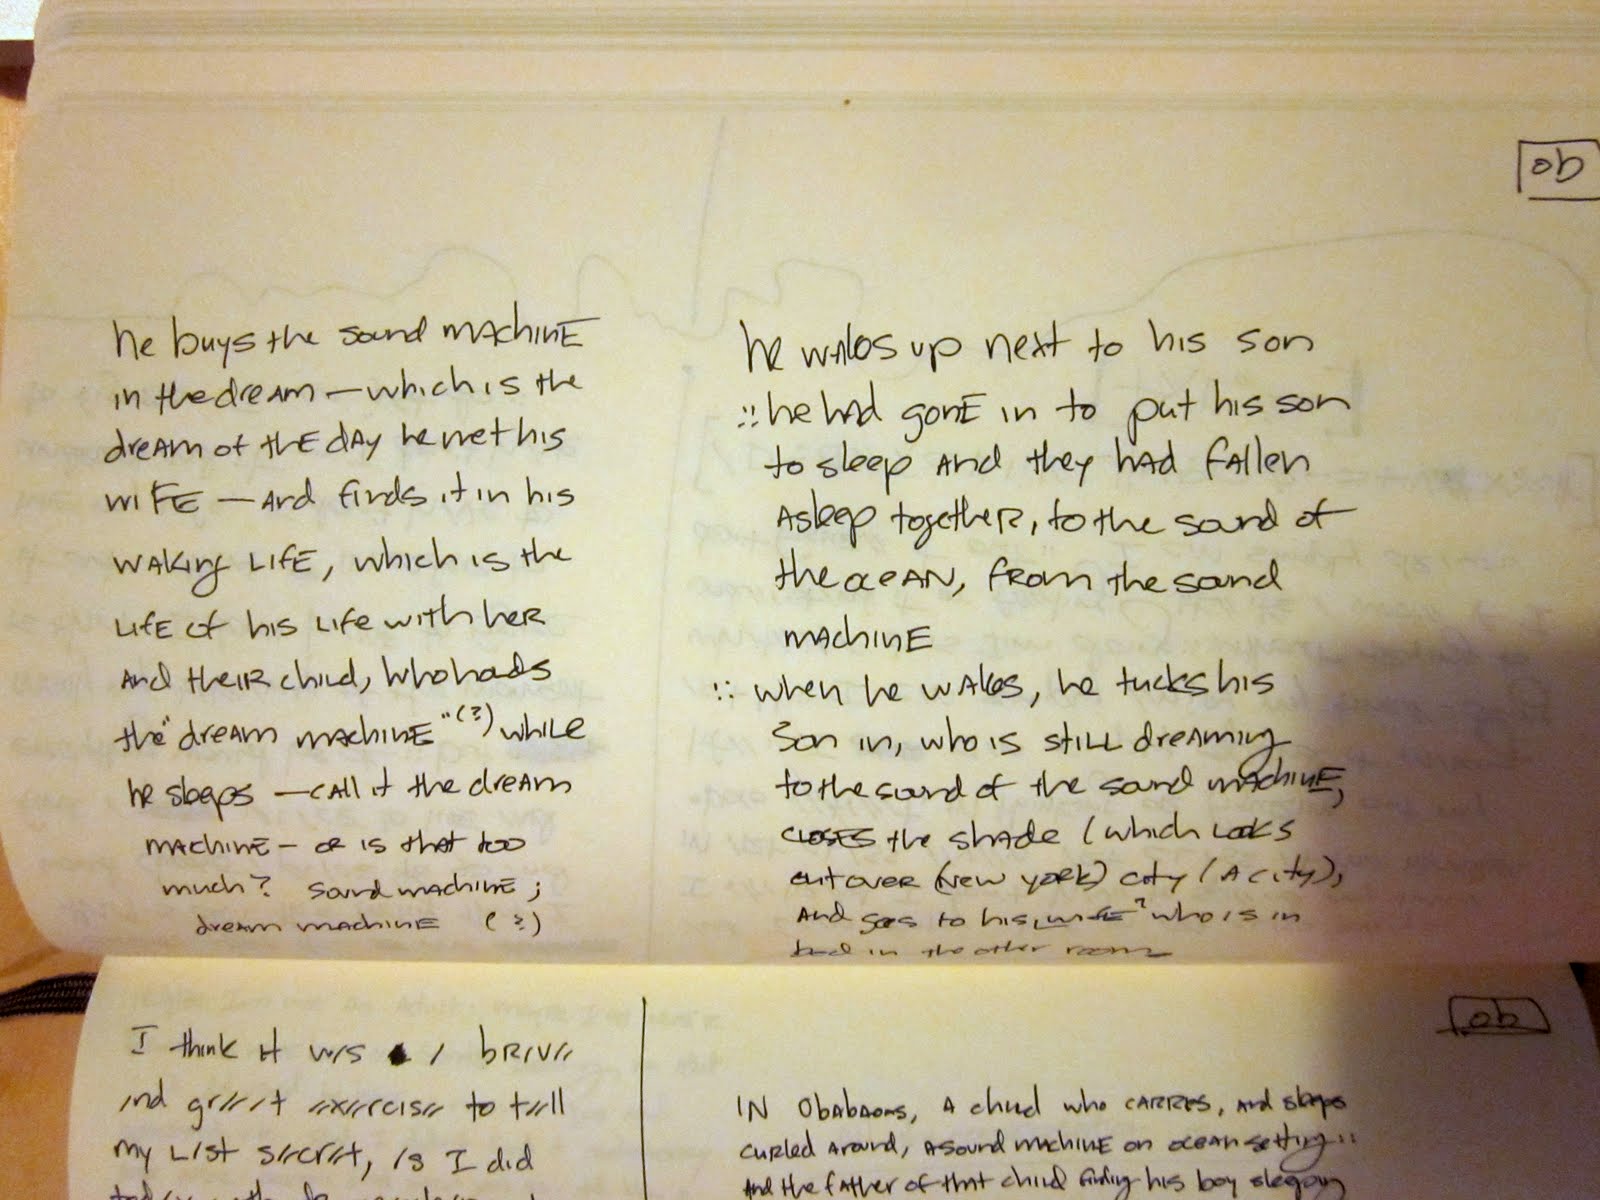 ob
he buys the sound machine
in the dream — which is the
dream of the day he met his
wife — and finds it in his
waking life, which is the
life of his life with her
and their child, who holds
the "dream machine" (?) while
he sleeps — call it the dream
machine — or is that too
much? sound machine;
dream machine (?)
he wakes up next to his son
:: he had gone in to put his son
to sleep and they had fallen
asleep together, to the sound of
the ocean, from the sound
machine
:: when he wakes, he tucks his
son in, who is still dreaming
to the sound of the sound machine,
closes the shade (which looks
out over (New York) city (a city),
and goes to his "wife" who is in
bed in the other room
I think it w/s / br/v//
/nd gr////t //x//rcis// to t//ll
my l/st s//cr//t, /s I did
ob
In Obabaoms, a child who carries, and sleeps
curled around, a sound machine on ocean setting ::
and the father of that child finding his boy sleeping